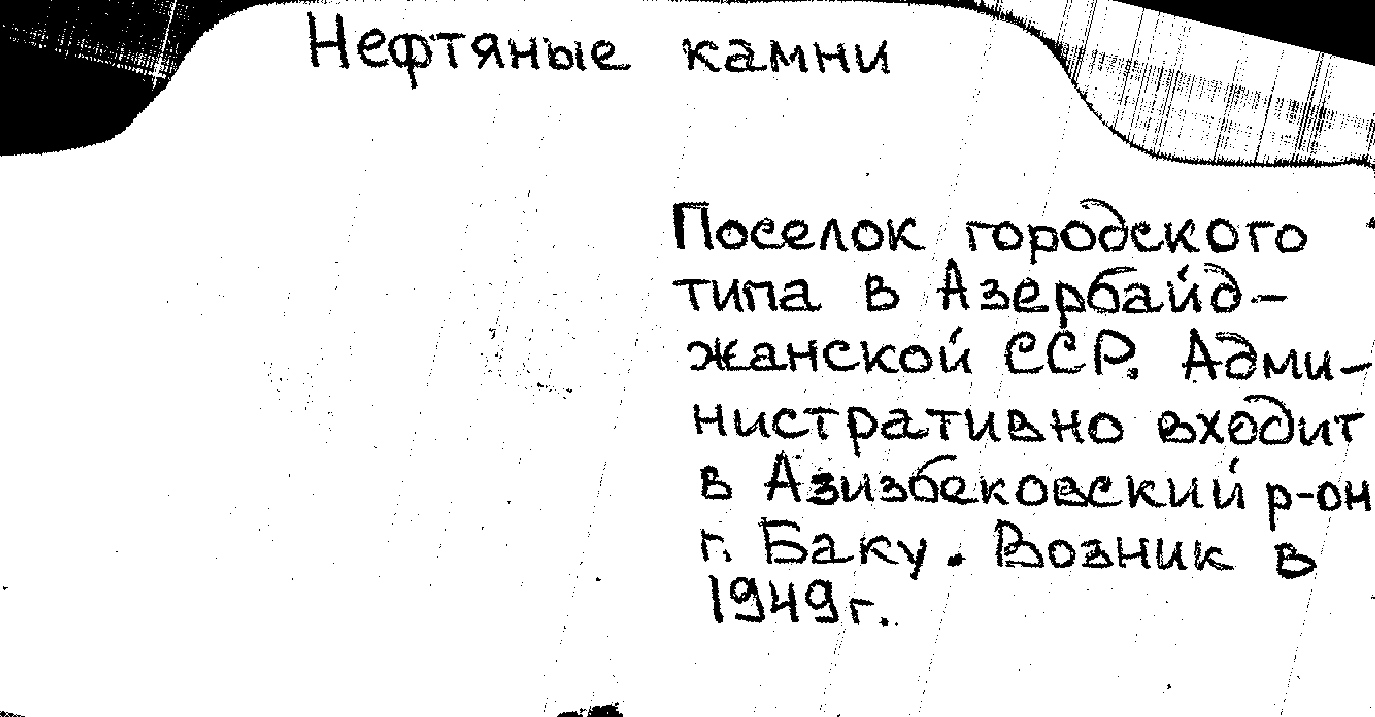 Нефтяные камни
Поселок городского
типа в Азербайд-
жанской ССР. Адми-
нистративно входит
в Азизбековский р-он
г. Баку. Возник в
1949г.